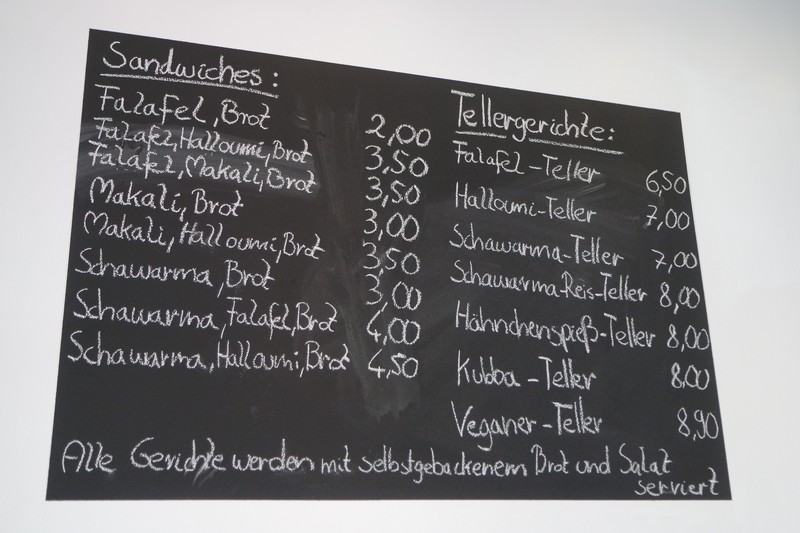 Sandwiches:
Falafel, Brot 2,00
Falafel, Halloumi, Brot 3,50
Falafel, Makali, Brot 3,50
Makali, Brot 3,00
Makali, Halloumi, Brot 3,50
Schawarma, Brot 3,00
Schawarma, Falafel, Brot 4,00
Schawarma, Halloumi, Brot 4,50
Tellergerichte:
Falafel-Teller 6,50
Halloumi-Teller 7,00
Schawarma-Teller 7,00
Schawarma-Reis-Teller 8,00
Hähnchenspieß-Teller 8,00
Kubba-Teller 8,00
Veganer-Teller 8,90
Alle Gerichte werden mit selbstgebackenem Brot und Salat
serviert